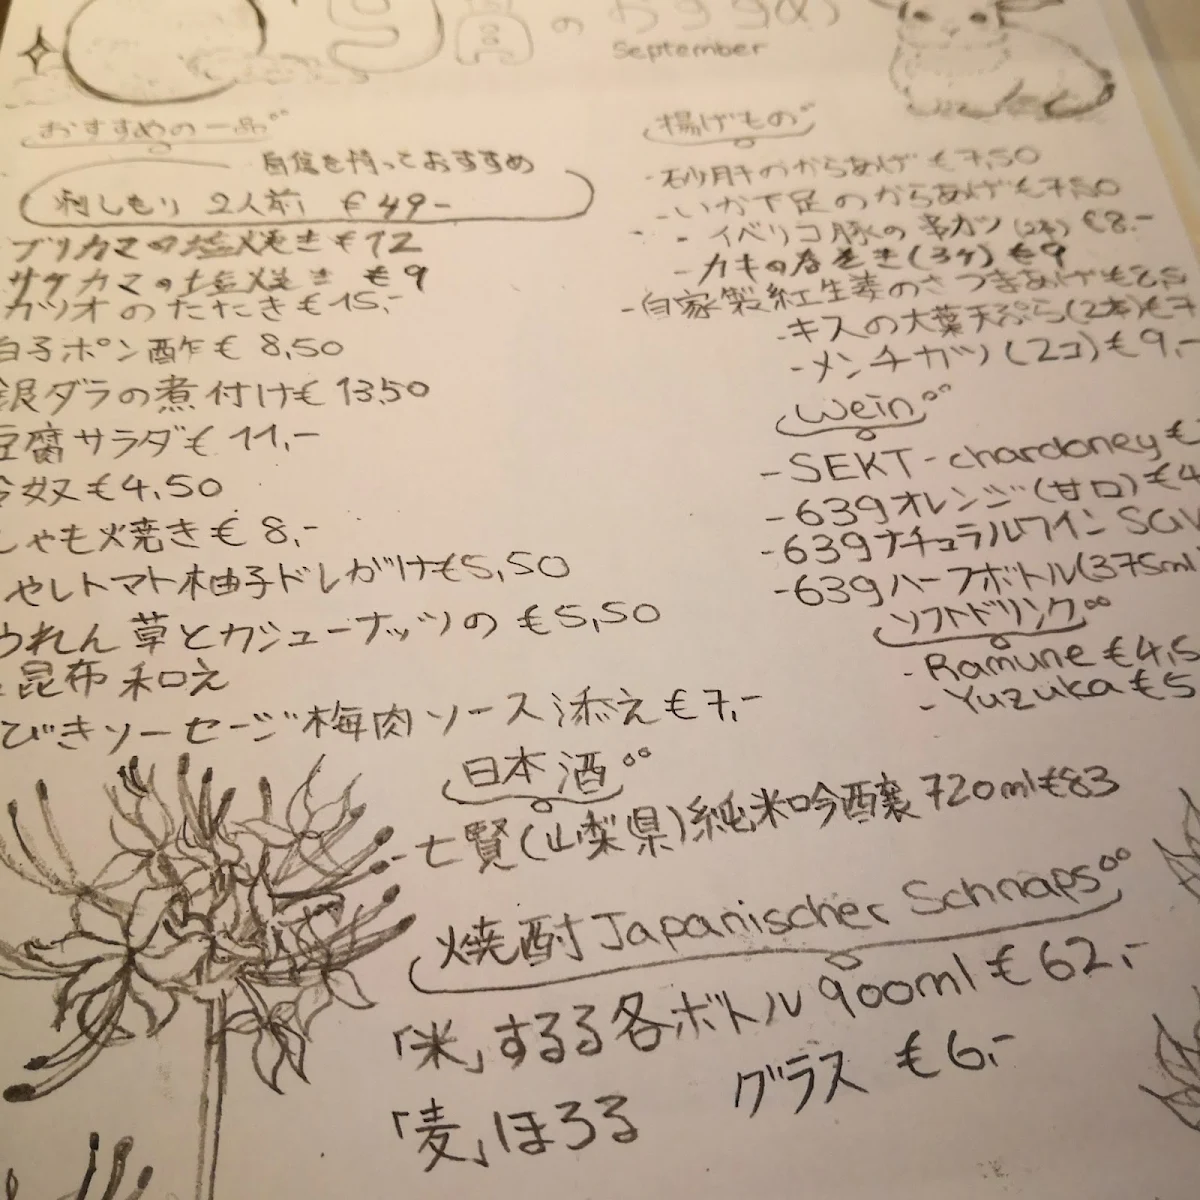 のおすすめ
September
おすすめの一品
自信を持っておすすめ
刺しもり 2人前 €49-
ブリカマの塩焼き €12
サケカマの塩焼き €9
カツオのたたき €15,-
白子ポン酢 € 8,50
銀ダラの煮付け € 13,50
豆腐サラダ € 11,-
冷奴 €4,50
しゃも焼き € 8,-
やしトマト柚子ドレがけ €5,50
うれん草とカシューナッツの €5,50
昆布和え
びきソーセージ梅肉ソース添え €7,-
揚げもの
・砂肝のからあげ €7,50
- いか下足のからあげ €7,50
- イベリコ豚の串カツ (2本) €8.-
- カキの春まき (3ヶ) €9
- 自家製紅生姜のさつまあげ €8,5
- キスの大葉天ぷら (2本) €7
- メンチカツ (2コ) €9,-
Wein
- SEKT - chardoney €
- 639オレンジ (甘口) €4
- 639ナチュラルワイン
- 639ハーフボトル (375ml
ソフトドリンク
- Ramune €4,5
- Yuzuka €5
日本酒
- 七賢 (山梨県) 純米吟醸 720ml €83
焼酎 Japanischer Schnaps
「米」するる 各ボトル 900ml €62,-
「麦」ほろる グラス €6,-